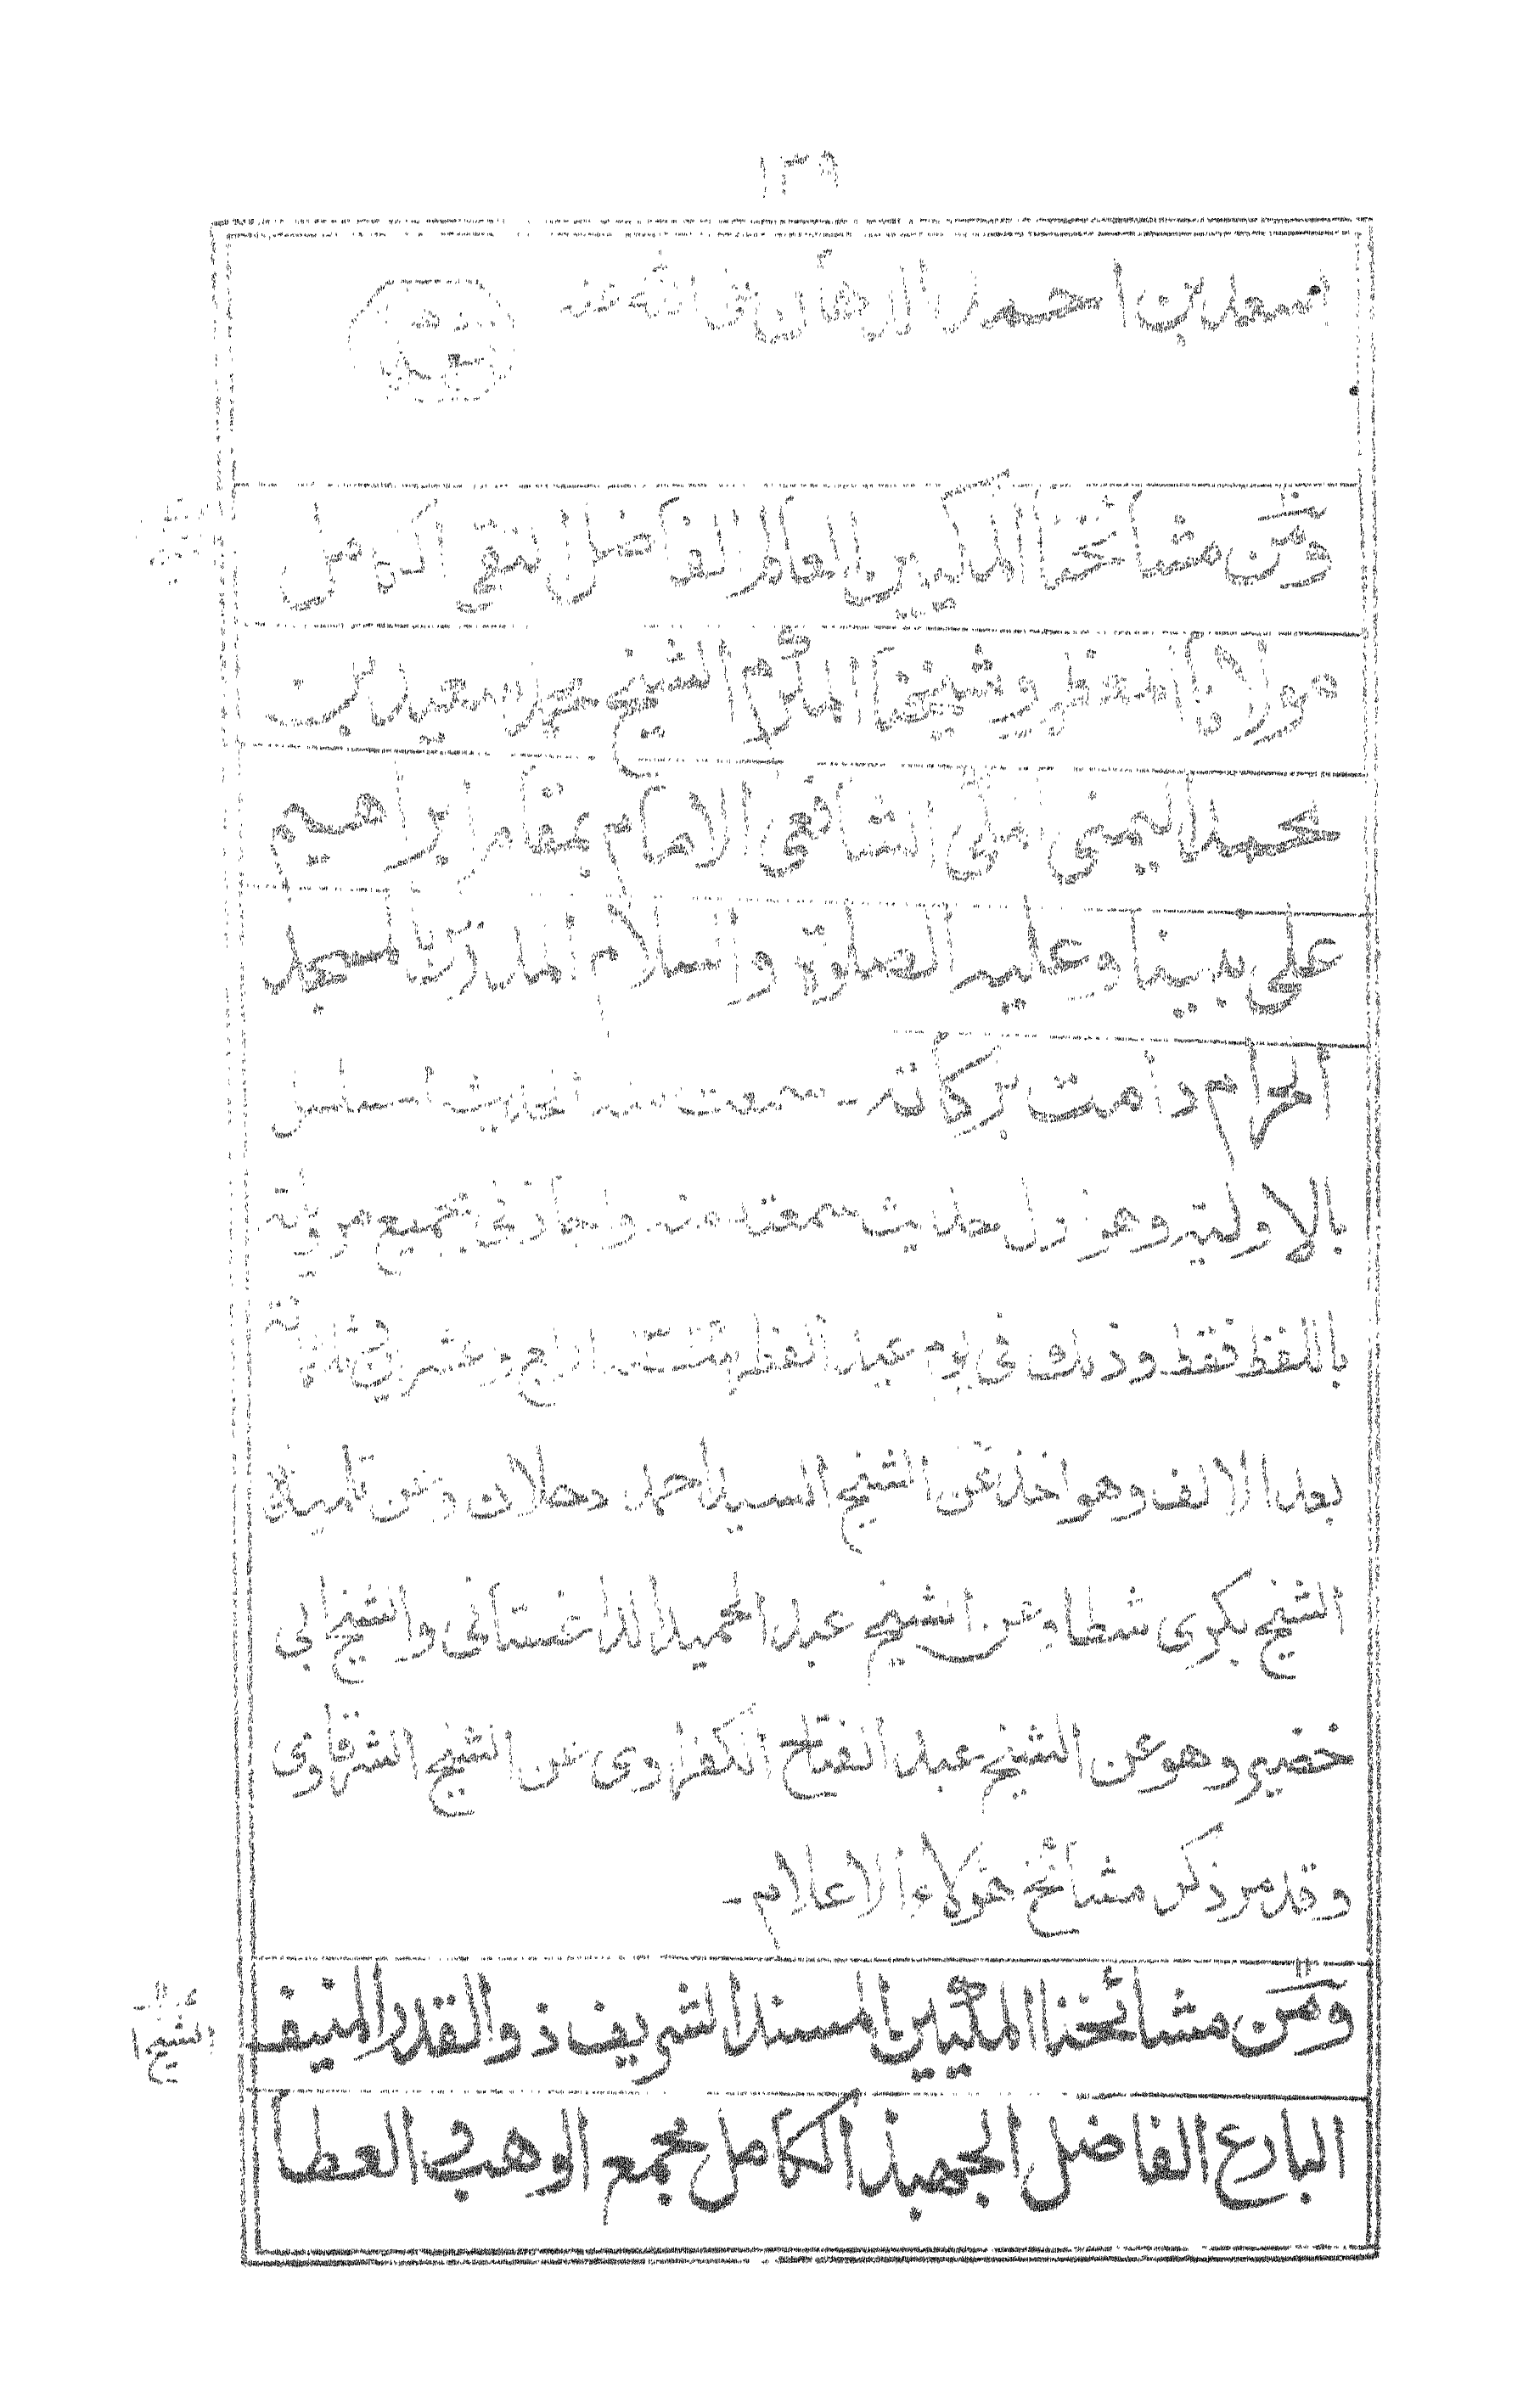 ١٣٩
اسعد بن احمد الدهان رضي الله عنه
وممن مشائخنا المكيين العالم الفاضل التقي الكامل
مولانا المعظم وشيخنا المكرم الشيخ محمد سعيد بن
محمد اليمني المكي الشافعي الامام بمقام ابراهيم
على نبينا وعليه الصلوة والسلام المدرس بالمسجد
الحرام دامت بركاته ـ سمعت منه الحديث المسلسل
بالاولية وهو اول حديث سمعته منه واجازني بجميع مروياته
باللفظ فقط وذلك في يوم عيد الفطر اربع وعشرين وثلاثمائة
بعد الالف وهو اخذ عن الشيخ السيد احمد دحلان وعن تلميذه
الشيخ بكرى شطا وعن الشيخ عبد الحميد الداغستانى والشيخ ابي
خضير وهو عن الشيخ عبد الفتاح الكفراوى عن الشيخ الشرقاوى
وقد مر ذكر مشائخ هؤلاء الاعلام ـ
وممن مشائخنا المكيين المسند الشريف ذو القدر المنيف
الشيخ
البارع الفاضل الجهبذ الكامل مجمع الوهبي العطا